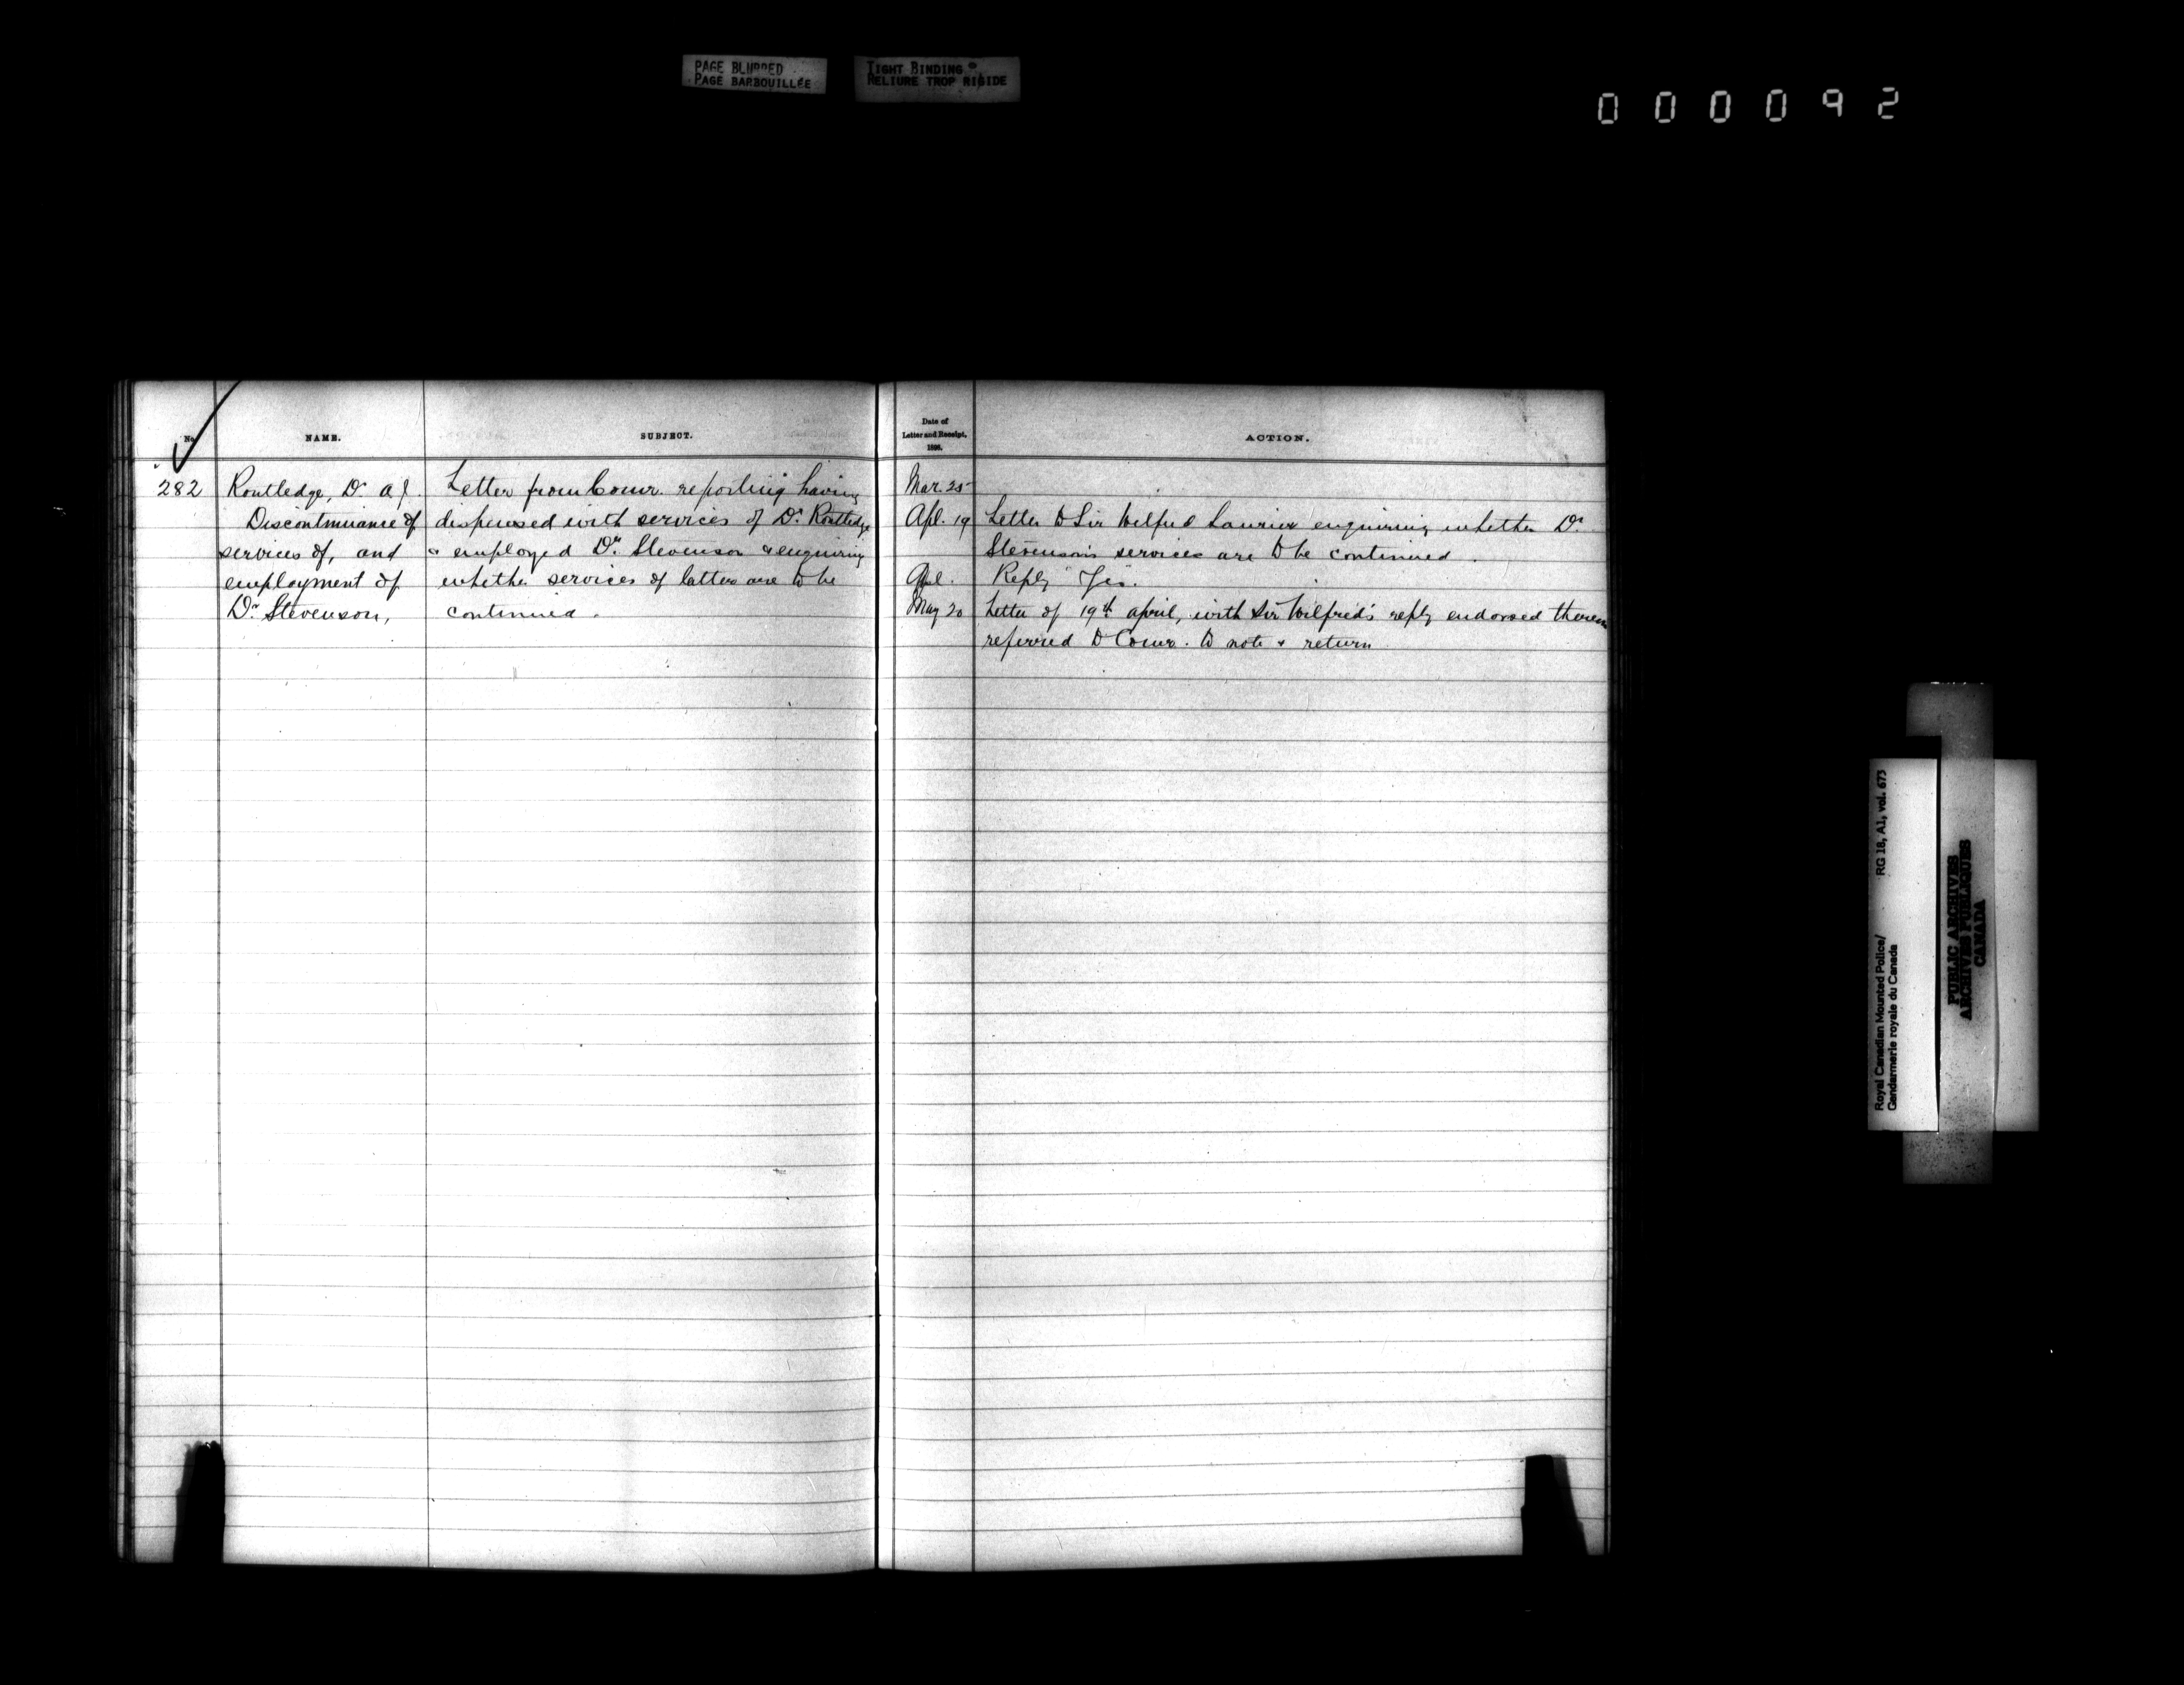 PAGE BLURRED
PAGE BARBOUILLÉE
TIGHT BINDING
RELIURE TROP RIGIDE
000092
No.
NAME.
SUBJECT.
282
Routledge, Dr. A. J.
Discontinuance of
services of, and
employment of
Dr. Stevenson,
Letter from Comr. reporting having
dispensed with services of Dr. Routledge
& employed Dr. Stevenson & enquiring
whether services of latter are to be
continued.
Date of
Letter and Receipt,
1898.
ACTION.
Mar. 25
Apl. 19 Letter to Sir Wilfrid Laurier enquiring whether Dr.
Stevenson's services are to be continued.
Apl. Reply "Yes".
May 20 Letter of 19th April, with Sir Wilfred's reply endorsed thereon
referred to Comr. to note & return
Royal Canadian Mounted Police/ RG 18, A1, vol. 673
Gendarmerie royale du Canada
PUBLIC ARCHIVES
ARCHIVES PUBLIQUES
CANADA